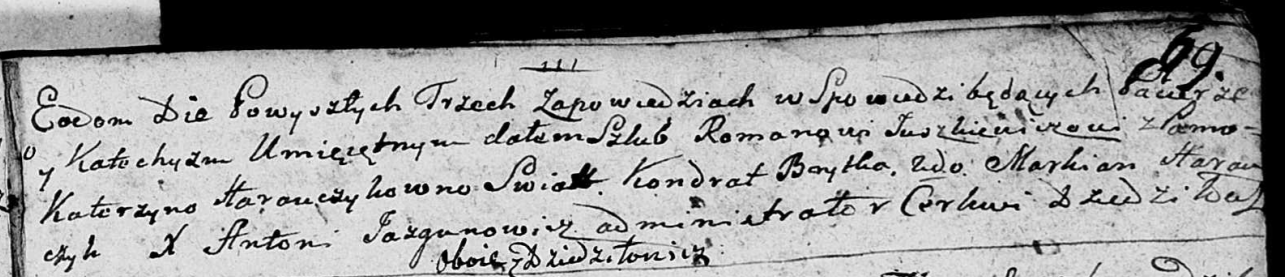 69.
Eodem Die Powyszłych Trzech Zapowiedziach w Spowiedzi będących Pacierze
y Katechyzm Umięjętnym dałem Szlub Romanowi Juszkiewiczowi z Panno-
Katerzyno Harauczykowno Swiatt. Kondrat Boytka. 2do Markian Harau
czyk X Antoni Jazgunowicz administrator Cerkwi Dziedziłow
oboie z Dziedziłowicz